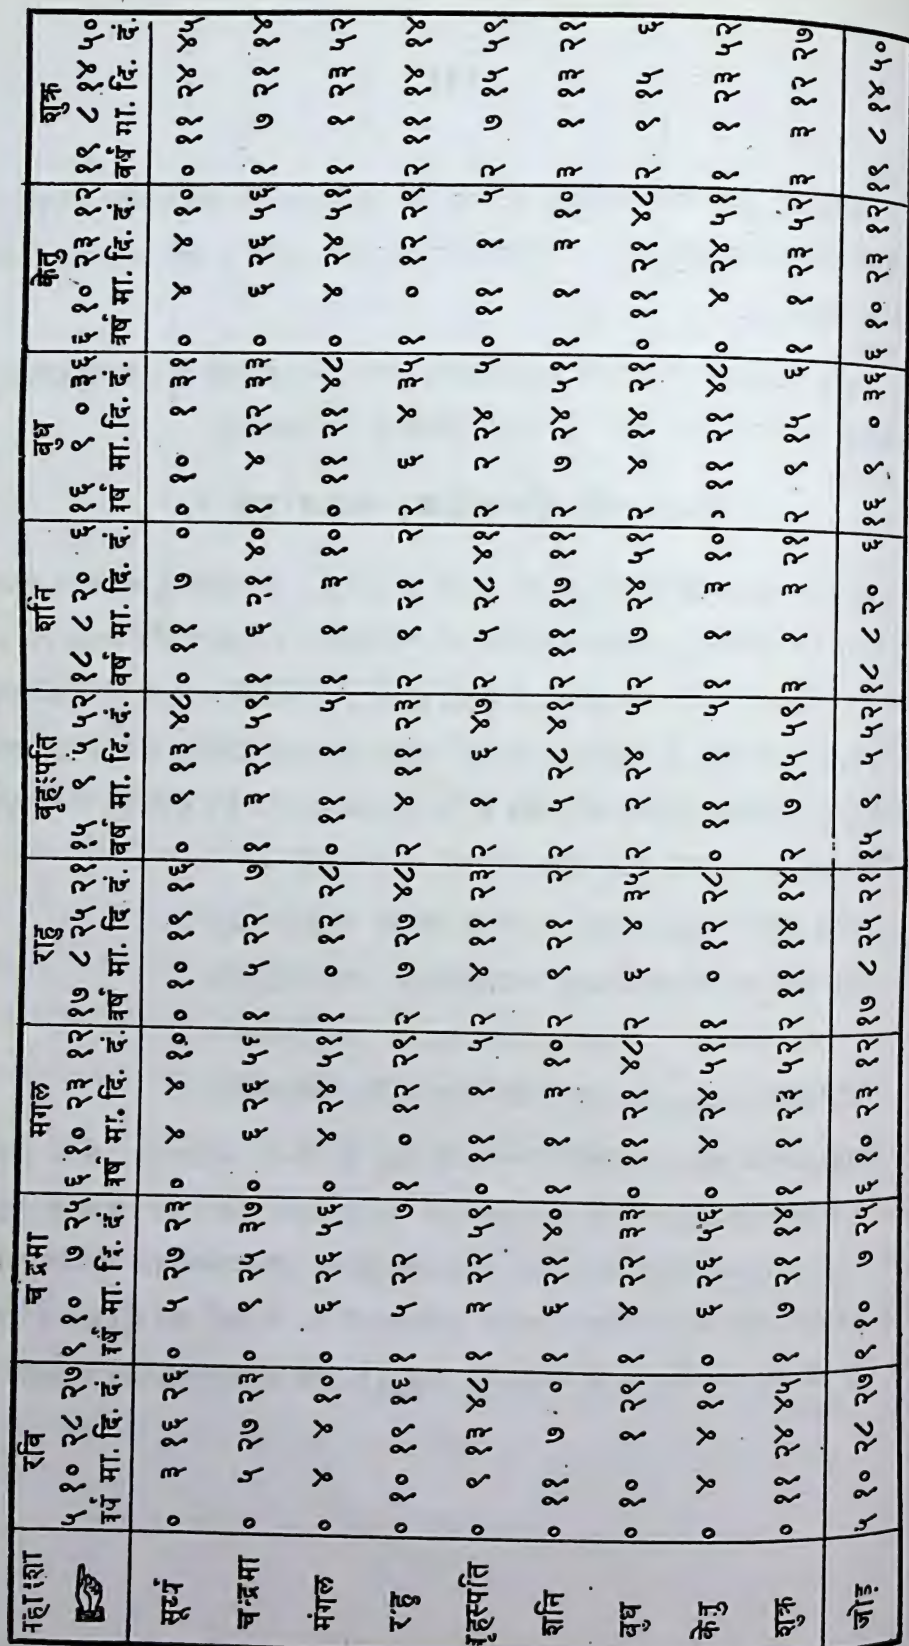 महादशा रवि चंद्रमा मंगल राहु वृहःपति शनि बुध केतु शुक्र
५ १० २८ २७ ९ १० ७ २५ ६ १० २३ १२ १७ ८ २५ २१ १५ ९ ५ ५२ १८ ८ २० ६ १६ ९ ० ३६ ६ १० २३ १२ १९ ८ १४ ५०
वर्ष मा. दि. दं. वर्ष मा. दि. दं. वर्ष मा. दि. दं. वर्ष मा. दि दं. वर्ष मा. दि. दं. वर्ष मा. दि. दं. वर्ष मा. दि. दं. वर्ष मा. दि. दं. वर्ष मा. दि. दं.
सूर्य्य ० ३ १६ २६ ० ५ २७ २३ ० ४ ४ १० ० १० ११ १६ ० ९ १३ ४८ ० ११ ७ ० ० १० १ ३१ ० ४ ४ १० ० ११ २४ ४५
चन्द्रमा ० ५ २७ २३ ० ९ २५ ३७ ० ६ २६ ५६ १ ५ २२ ७ १ ३ २२ ५९ १ ६ १९ ४० १ ४ २२ ३३ ० ६ २६ ५६ १ ७ २१ ४१
मंगल ० ४ ४ १० ० ६ २६ ५६ ० ४ २४ ५१ १ ० १९ २८ ० ११ १ ५ १ १ ३ १० ० ११ २१ ४८ ० ४ २४ ५१ १ १ २३ ५२
राहु ० १० ११ १६ १ ५ २२ ७ १ ० १९ २९ २ ७ २७ ४८ २ ४ ११ २३ २ ९ २१ २ २ ६ ४ ३५ १ ० १९ २९ २ ११ १४ ४१
वृहस्पति ० ९ १३ ४८ १ ३ २२ ५९ ० ११ १ ५ २ ४ ११ २३ २ १ ६ ४७ २ ५ २८ ४१ २ २ २४ ५ ० ११ १ ५ २ ७ १५ ५१
शनि ० ११ ७ ० १ ६ १९ ४० १ १ ३ १० २ ९ २१ २ २ ५ २८ ४१ २ ११ १७ ११ २ ७ २४ ५१ १ १ ३ १० ३ १ ३ २१
बुध ० १० १ २९ १ ४ २२ ३३ ० ११ २१ ४८ २ ६ ४ ३५ २ २ २४ ५ २ ७ २४ ५१ २ ४ १४ २१ ० ११ २१ ४८ २ ९ १५ ६
केतु ० ४ ४ १० ० ६ २६ ५६ ० ४ २४ ५१ १ ० १९ २८ ० ११ १ ५ १ १ ३ १० ११ २१ ४८ ० ४ २४ ५१ १ १ २३ ५२
शुक्र ० ११ २४ ४५ १ ७ २१ ४१ १ १ २३ ५२ २ ११ १४ ४१ २ ७ १५ ५१ ३ १ ३ २१ २ ९ १५ ६ १ १ २३ ५२ ३ ३ २१ २७
जोड़ ५ १० २८ २७ ९ १० ७ २५ ६ १० २३ १२ १७ ८ २५ २१ १५ ९ ५ ५२ १८ ८ २० ६ १६ ९ ० ३६ ६ १० २३ १२ १९ ८ १४ ५०